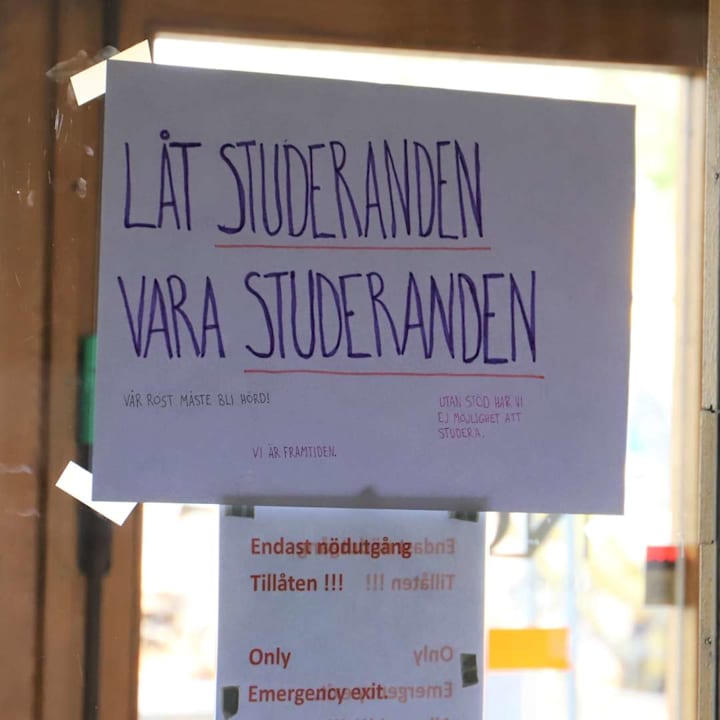 LÅT STUDERANDEN
VARA STUDERANDEN
VÅR RÖST MÅSTE BLI HÖRD!
UTAN STÖD HAR VI
EJ MÖJLIGHET ATT
STUDERA.
VI ÄR FRAMTIDEN.
Endast nödutgång
Tillåten !!!
Only
Emergency exit.